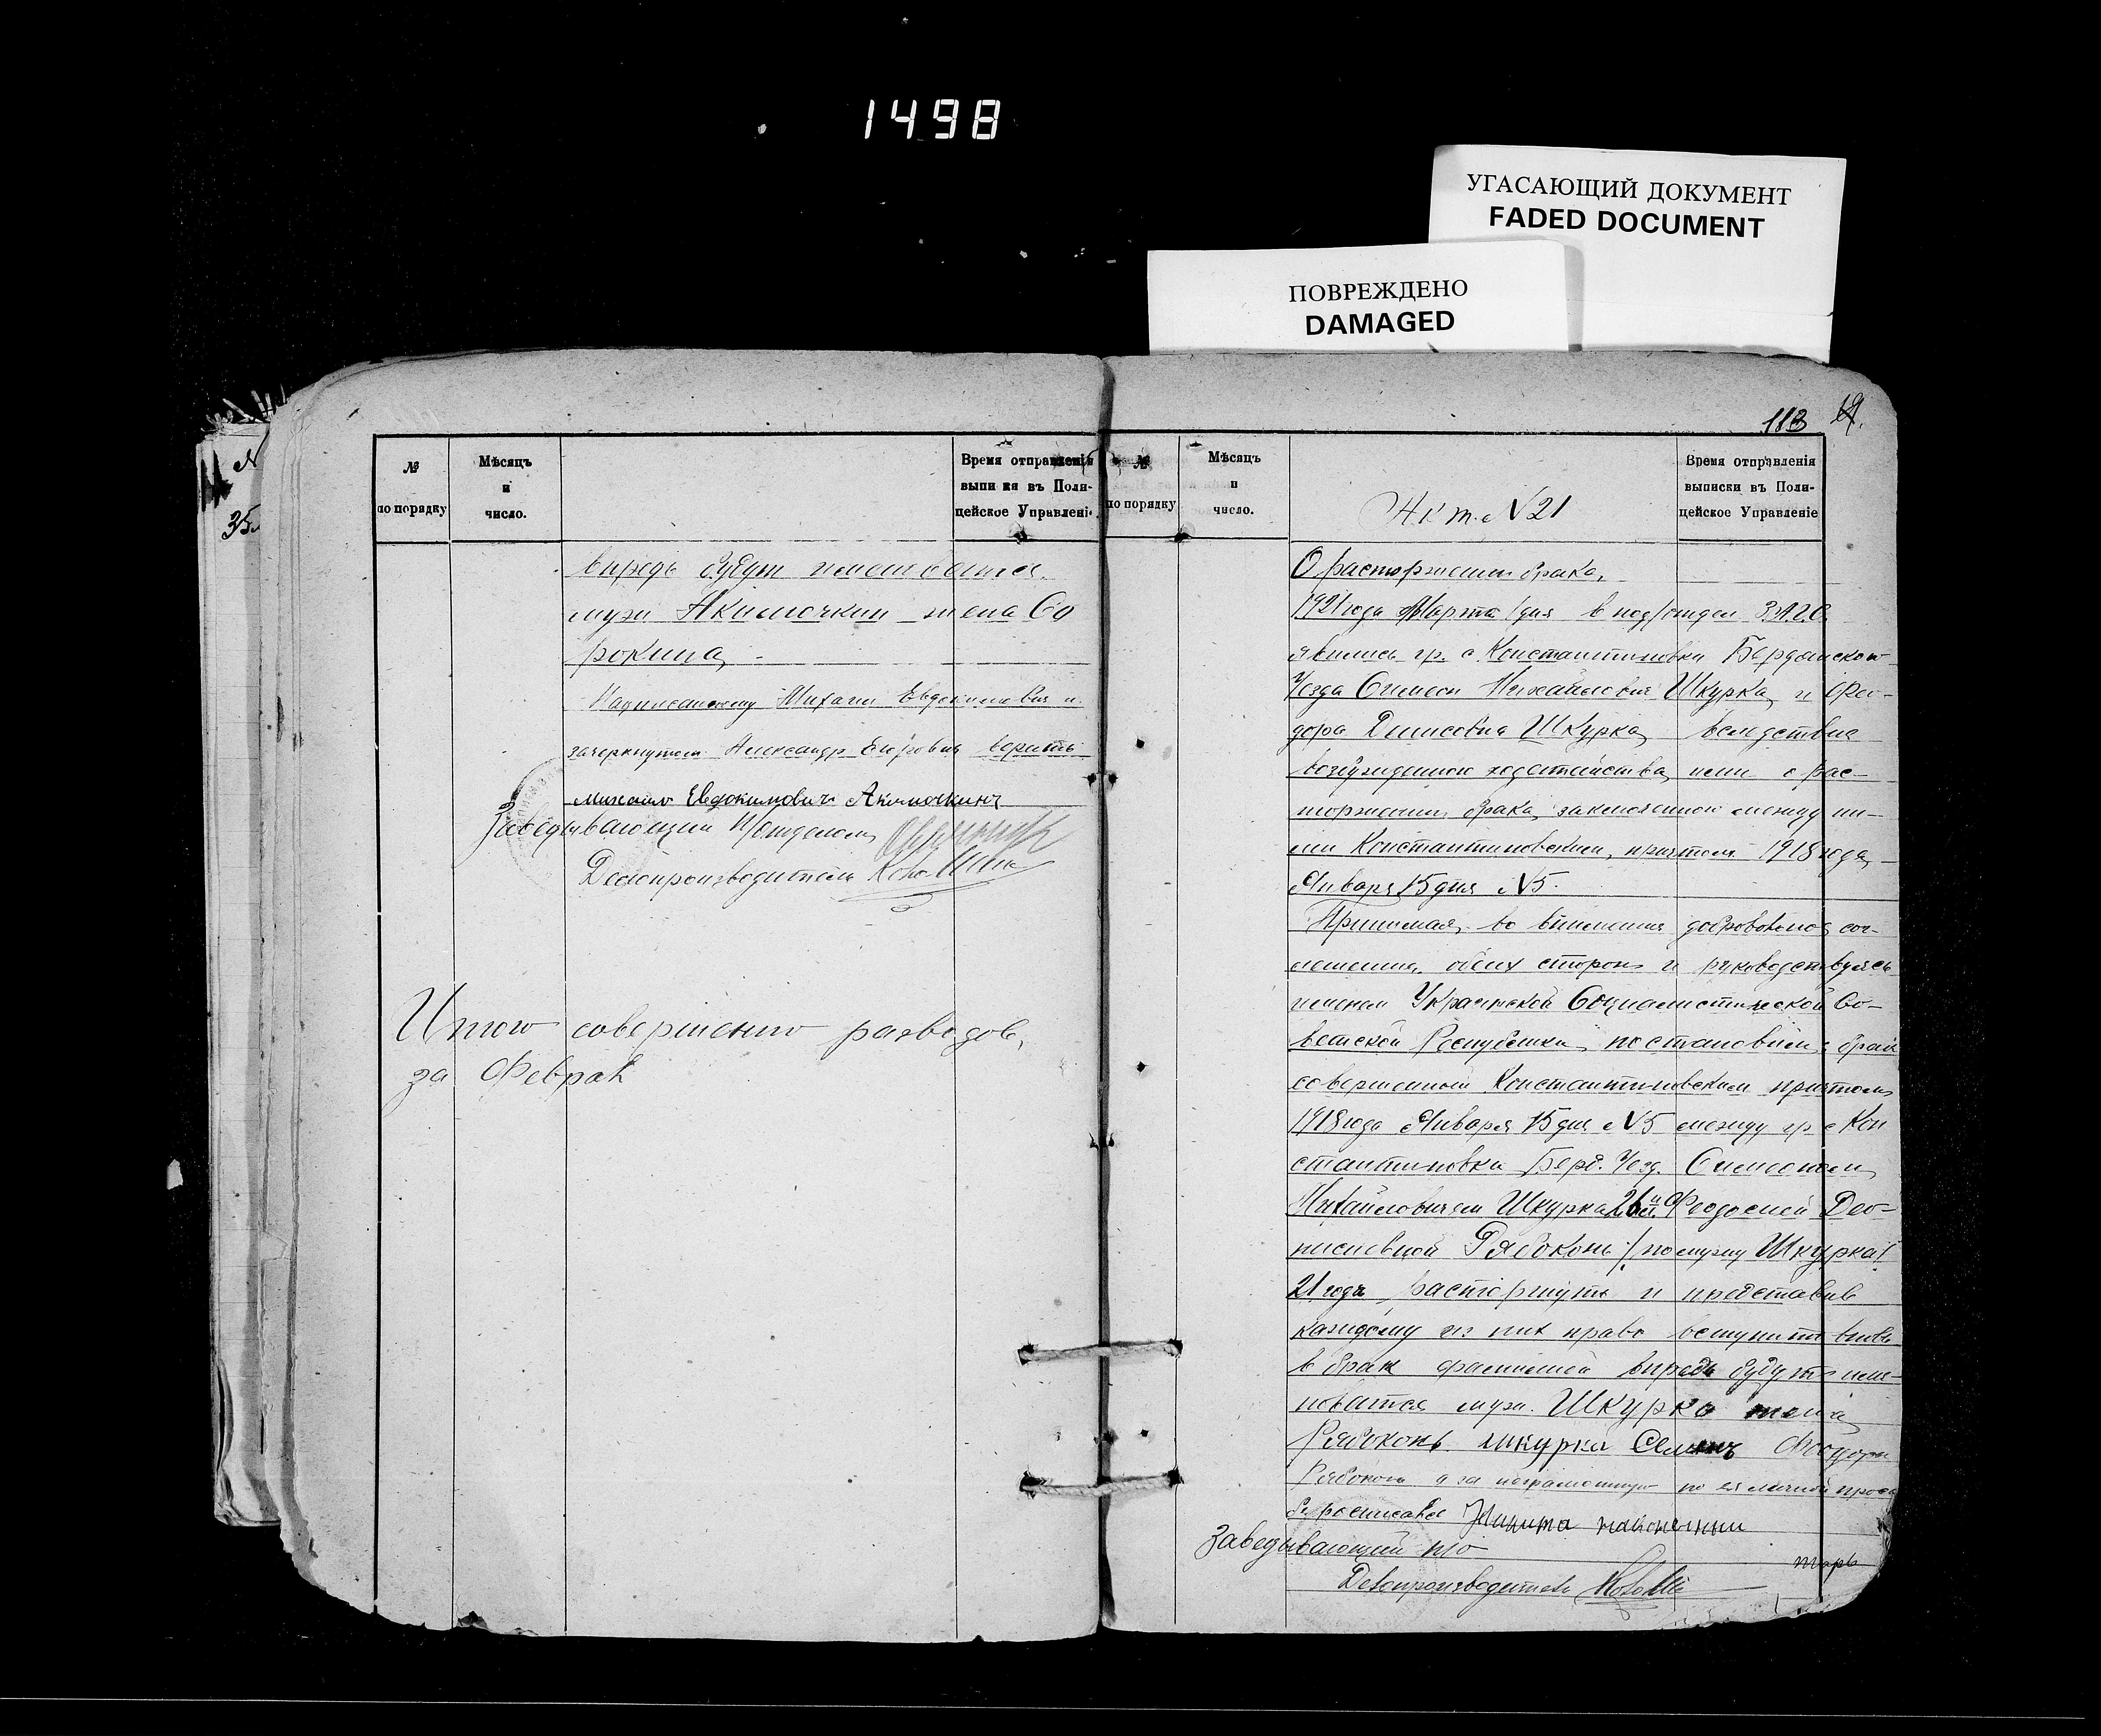 1498
УГАСАЮЩИЙ ДОКУМЕНТ
FADED DOCUMENT
ПОВРЕЖДЕНО
DAMAGED
35
№
по порядку
Мѣсяцъ
и
число.
Время отправленія
выпи ки въ Поли-
цейское Управлені
впредь будут именоватся
муж Акимочкин жена Со
рокина
Надписанному Михаил Евдокимович и
зачеркнутому Александр Егорович верить
Михаил Евдокимовичъ Акимочкинъ
Заведывающий П/отделом
Делопроизводитель
Итого совершено разводов,
за Февраль
113
№
по порядку
Мѣсяцъ
и
число.
Акт № 21
Время отправленія
выписки въ Поли-
цейское Управленіе
О расторжении брака,
1921 года Марта 1 дня в под/отдел З.А.Г.С.
явились гр. с Константиновки Бердянского
Уезда Симеон Михайлович Шкурка и Фео-
дора Денисовна Шкурка вследствие
возбужденного ходатайства ими о рас-
торжении брака, заключенного между ни-
ми Константиновским, причтом 1918 года
Января 15 дня № 5.
Принимая во внимания доброволное сог-
лашения обеих сторон и руководствуясь
именем Украинской Социалистической Со-
ветской Республики, постановил: брак
совершенный Константиновским причтом
1918 года Января 15 дня № 5 между гр с Кон
стантиновки Берд. Уезд. Симеоном
Михайловичем Шкурка 26 и Феодосией Део-
нисиевной Рябоконь /по мужу Шкурка/
21 года расторгнуть и представив
каждому из них право вступить вновь
в брак фамилией впредь будут име-
новатся муж. Шкурка жена
Рябоконь. Шкурка Семенъ Феодора
Рябоконь а за неграмотную по ея личной прось
бе росписался Никита
Заведывающий п/о
Делопроизводитель